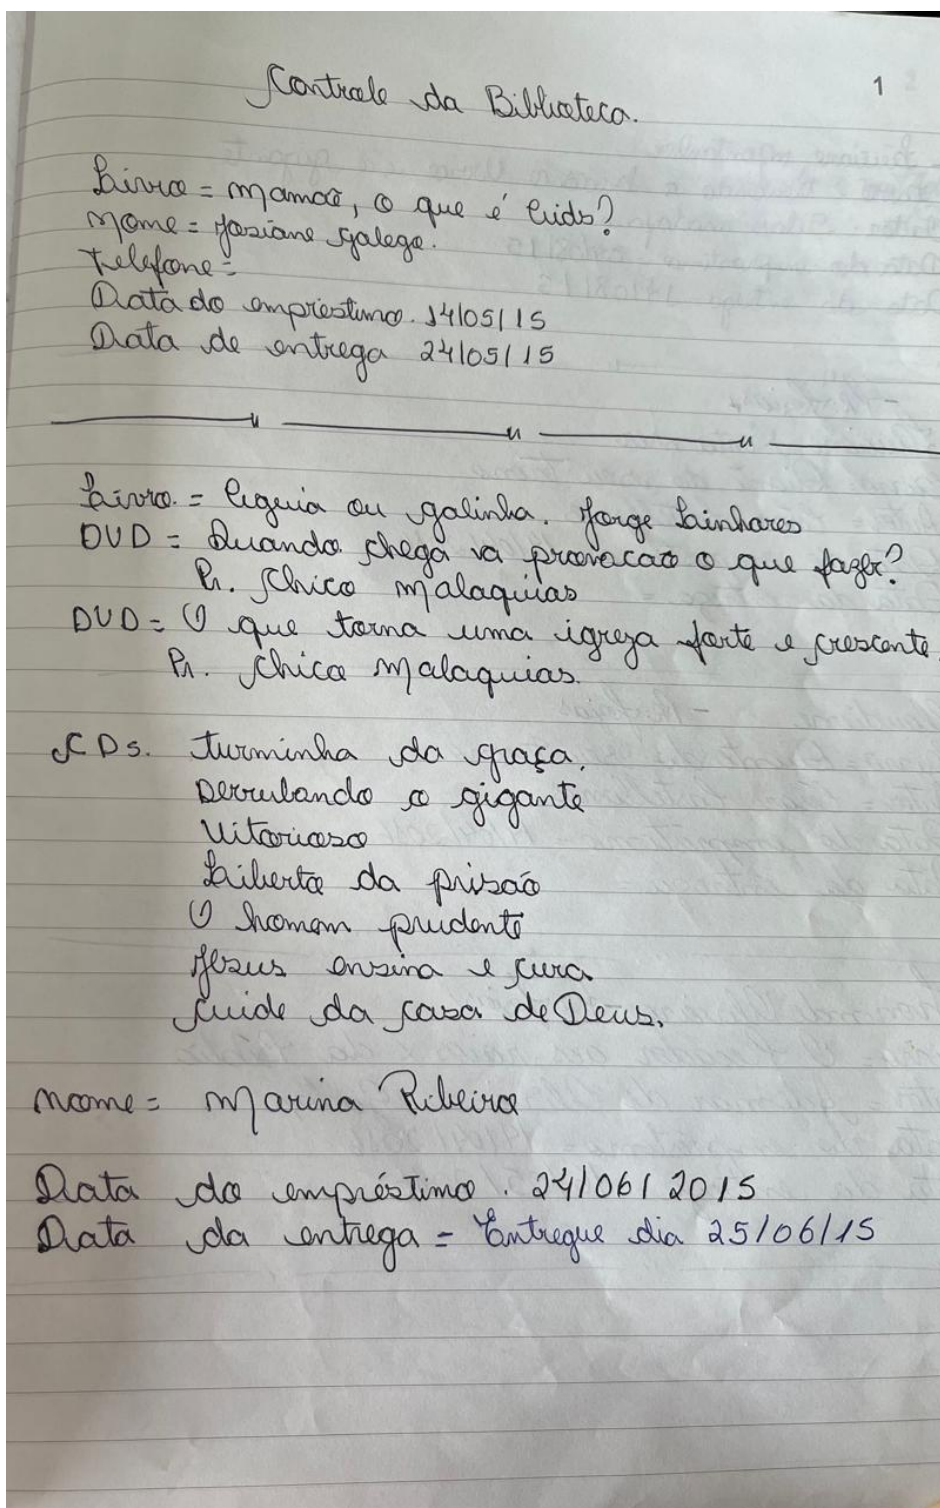 Controle da Biblioteca.
1
Livro = Mamãe, o que é Cids?
Nome = Josiane Galego.
Telefone =
Data do empréstimo. 14/05/15
Data de entrega 24/05/15
Livro. = Aguia ou galinha. Jorge Linhares
DVD = Quando chega va provacao o que fazer?
Pr. Chico Malaquias
DVD = O que torna uma igreja forte e crescente
Pr. Chico Malaquias.
CDs. turminha da graça.
Derrubando o gigante
Vitorioso
Liberto da prisão
O homem prudente
Jesus ensina e cura
Cuide da casa de Deus.
Nome = Marina Ribeiro
Data do empréstimo. 24/06/2015
Data da entrega = Entregue dia 25/06/15